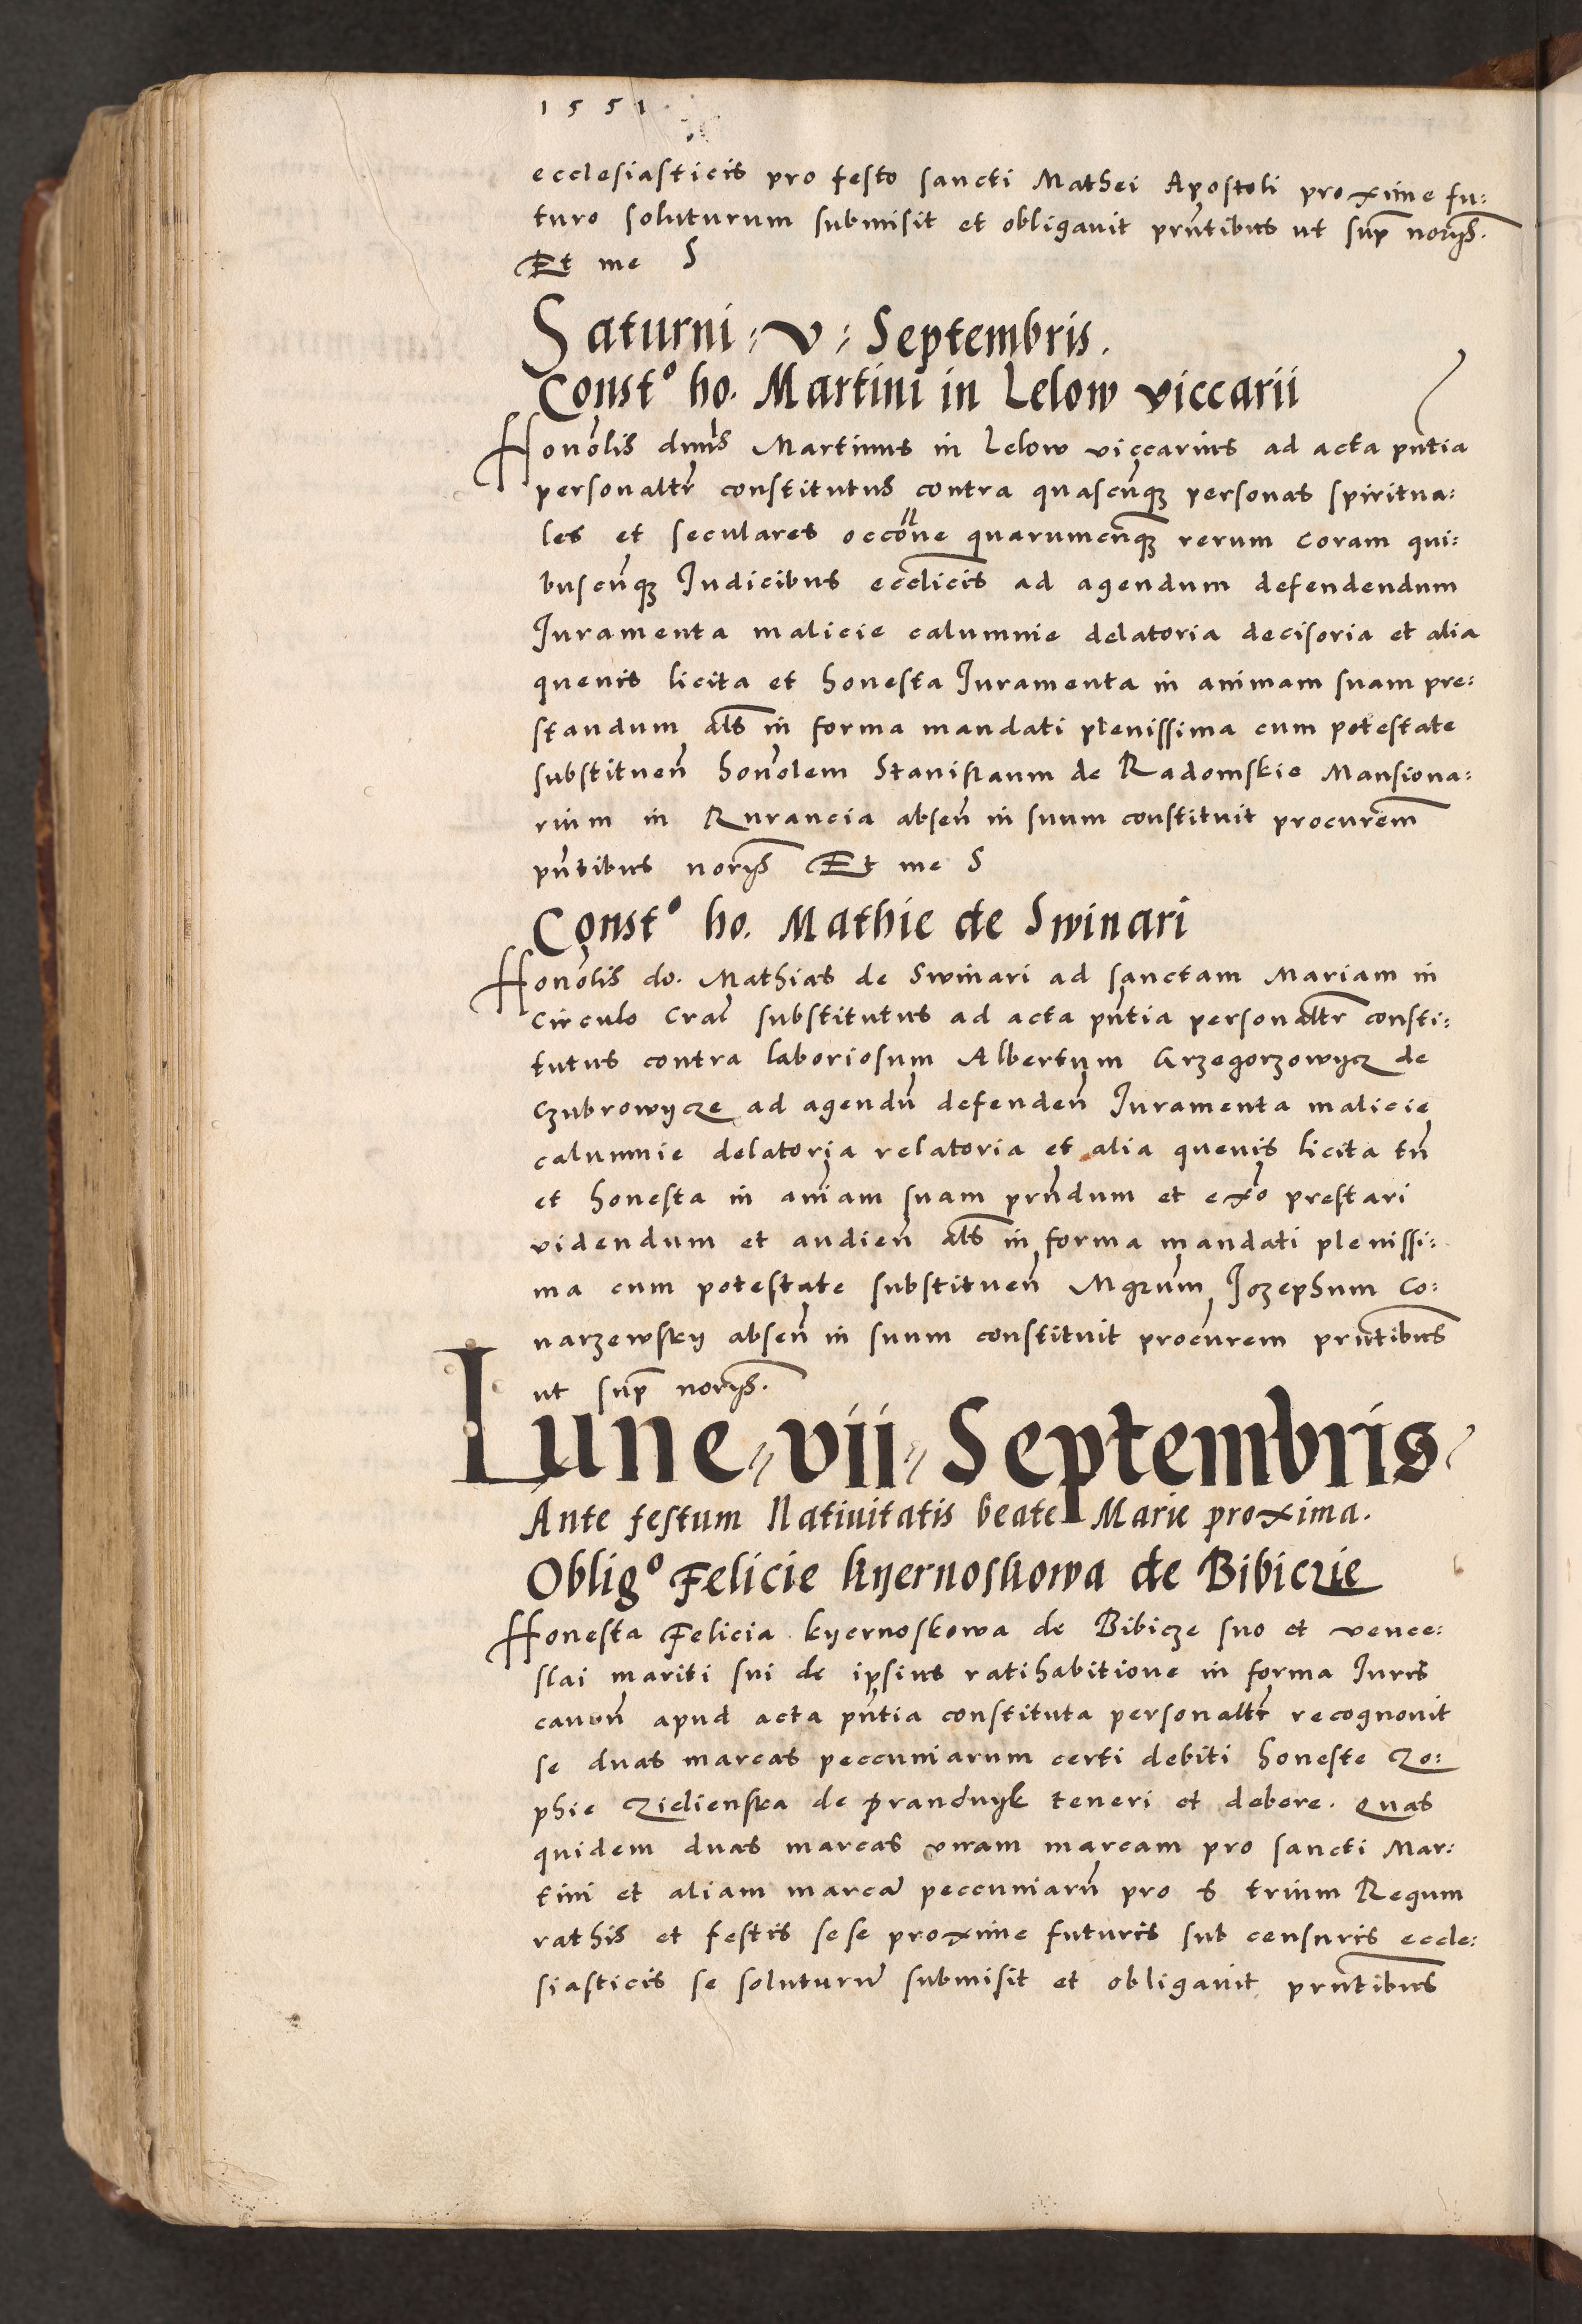 1551
ecclesiasticis pro festo sancti Mathei Apostoli proxime fu:
turo soluturum submisit et obligavit prntibus ut supra norijs.
Et me S
Saturni ; V ; Septembris.
Constº ho. Martini in Lelow viccarii
Honolis dnus Martinus in Lelow viccarius ad acta pntia
personaltr constitutus contra quascunque personas spiritua:
les et seculares occone quarumcunque rerum coram qui:
buscunque Iudicibus ecclicis ad agendum defendendum
Iuramenta malicie calumnie delatoria decisoria et alia
quevis licita et honesta Iuramenta in animam suam pre:
standum als in forma mandati plenissima cum potestate
substituen honolem Stanislaum de Radomskie Mansiona:
rium in Rurancia absen in suum constituit procurem
pntibus norijs Et me S
Constº ho. Mathie de Swinari
Honolis do. Mathias de Swinari ad sanctam Mariam in
Circulo Crac substitutus ad acta pntia personaltr consti:
tutus contra laboriosum Albertum Grzegorzowycz de
Czubrowycze ad agendu defenden Iuramenta malicie
calumnie delatoria relatoria et alia quevis licita tn
et honesta in aniam suam prndum et exo prestari
videndum et audien als in forma mandati plenissi:
ma cum potestate substituen Mgrum Iozephum Co:
narzewsky absen in suum constituit procurem prntibus
ut supra norijs.
Lune vii Septembris
Ante festum Nativitatis beate Marie proxima.
Obligº Felicie kyernoskowa de Bibiczie
Honesta Felicia kyernoskowa de Bibicze suo et vence:
slai mariti sui de ipsius ratihabitione in forma Iuris
cauon apud acta pntia constituta personaltr recognovit
se duas marcas peccuniarum certi debiti honeste Zo:
phie Zielienska de prandnyk teneri et debere. Quas
quidem duas marcas unam marcam pro sancti Mar:
tini et aliam marcam peccuniaru pro S trium Regum
rathis et festis sese proxime futuris sub censuris eccle:
siasticis se soluturum submisit et obligavit prntibus